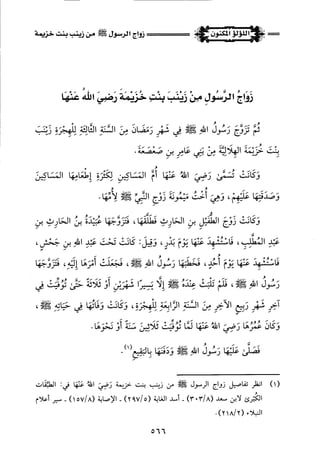 اللؤلؤ المكنون
زواج الرسول ﷺ من زينب بنت خزيمة
زَوَاجُ الرَّسُولِ مِنْ زَيْنَبَ بِنْتِ خُزَيْمَةَ رَضِيَ اللهُ عَنْهَا
ثُمَّ تَزَوَّجَ رَسُولُ اللهِ ﷺ فِي شَهْرِ رَمَضَانَ مِنَ السَّنَةِ الثَّالِثَةِ لِلْهِجْرَةِ زَيْنَبَ
بِنْتَ خُزَيْمَةَ الْهِلَالِيَّةَ مِنْ بَنِي عَامِرِ بنِ صَعْصَعَةَ.
وَكَانَتْ تُسَمَّى رَضِيَ اللهُ عَنْهَا أُمَّ المَسَاكِينِ لِكَثْرَةِ إِطْعَامِهَا المَسَاكِينَ
وَصَدَقَتِهَا عَلَيْهِمْ، وَهِيَ أُخْتُ مَيْمُونَةَ زَوْجِ النَّبِيِّ ﷺ لِأُمِّهَا.
وَكَانَتْ زَوْجَ الطُّفَيْلِ بنِ الحَارِثِ فَطَلَّقَهَا، فَتَزَوَّجَهَا عُبَيْدَةُ بنُ الحَارِثِ بنِ
عَبْدِ المُطَّلِبِ، فَاسْتُشْهِدَ عَنْهَا يَوْمَ بَدْرٍ، وَقِيلَ: كَانَتْ تَحْتَ عَبْدِ اللهِ بنِ جَحْشٍ،
فَاسْتُشْهِدَ عَنْهَا يَوْمَ أُحُدٍ، فَخَطَبَهَا رَسُولُ اللهِ ﷺ، فَجَعَلَتْ أَمْرَهَا إِلَيْهِ، فَتَزَوَّجَهَا
رَسُولُ اللهِ ﷺ، فَلَمْ تَلْبَثْ عِنْدَهُ ﷺ إِلَّا يَسِيرًا شَهْرَيْنِ أَوْ ثَلَاثَةً حَتَّى تُوُفِّيَتْ فِي
آخِرِ شَهْرِ رَبِيعٍ الآخِرِ مِنَ السَّنَةِ الرَّابِعَةِ لِلْهِجْرَةِ، وَكَانَتْ وَفَاتُهَا فِي حَيَاتِهِ ﷺ،
وَكَانَ عُمُرُهَا رَضِيَ اللهُ عَنْهَا لَمَّا تُوُفِّيَتْ ثَلَاثِينَ سَنَةً أَوْ نَحْوَهَا.
فَصَلَّى عَلَيْهَا رَسُولُ اللهِ ﷺ وَدَفَنَهَا بِالبَقِيعِ(١).
(١) انظر تفاصيل زواج الرسول ﷺ من زينب بنت خزيمة رَضِيَ اللهُ عَنْهَا في: الطبَّقات
الكبْرَى لابن سعد (٣٠٣/٨) - أسد الغابة (٢٩٧/٥) - الإصابة (١٥٧/٨) - سير أعلام
النبلاء (٢١٨/٢).
٥٦٦